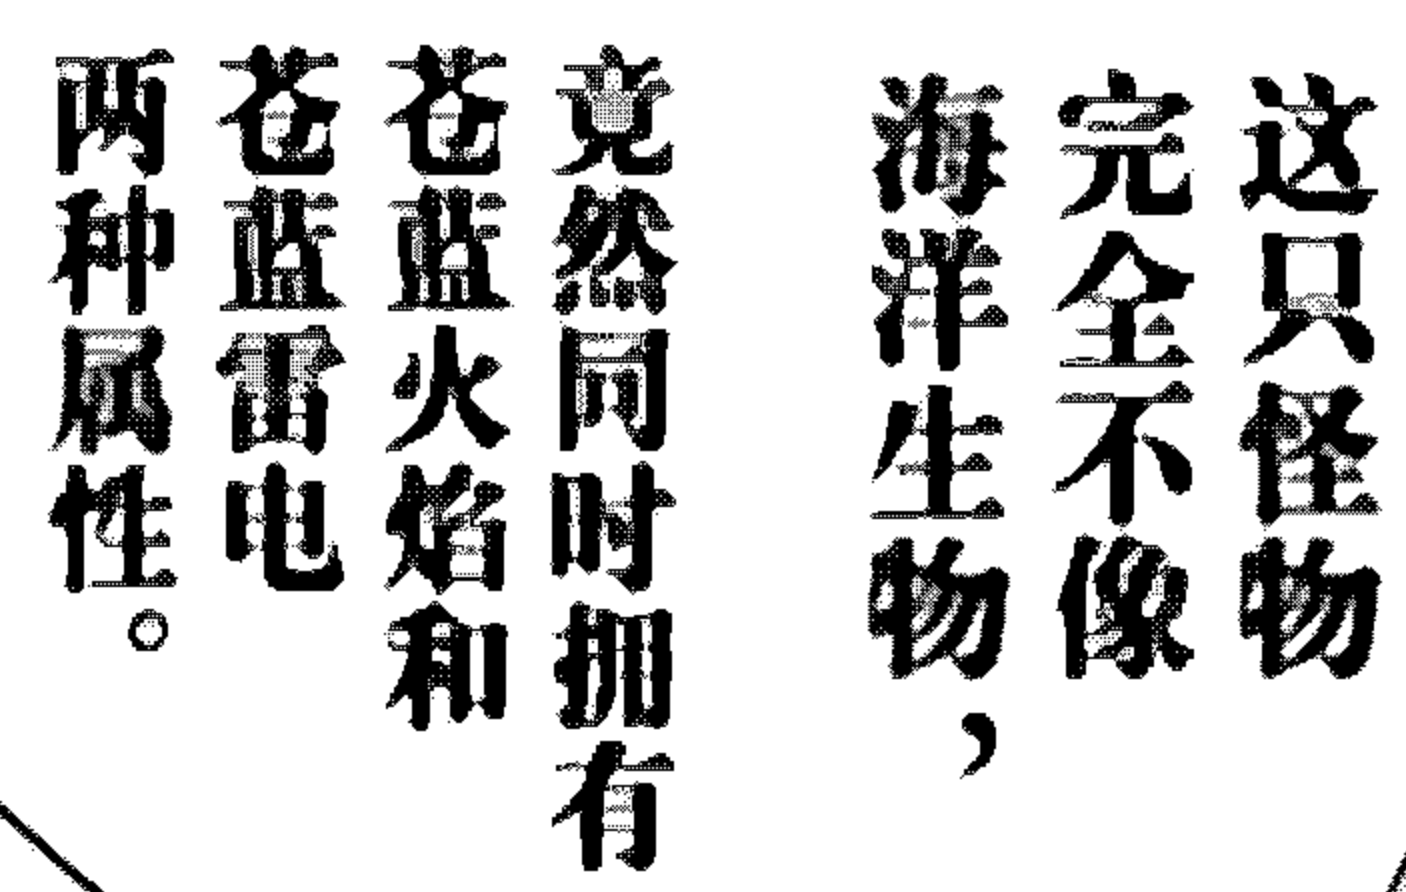 这只怪物
完全不像
海洋生物，
竟然同时拥有
苍蓝火焰和
苍蓝雷电
两种属性。